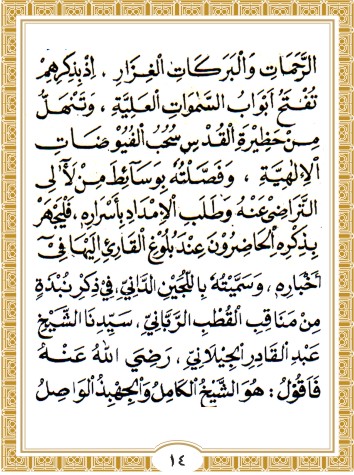 الرَّحَمَاتِ وَالْبَرَكَاتِ الْغِزَارِ ، إِذْ بِذِكْرِهِمْ
تُفْتَحُ أَبْوَابُ السَّمٰوَاتِ الْعَلِيَّةِ ، وَتَنْهَلُّ
مِنْ حَظِيْرَةِ الْقُدْسِ سُحُبُ الْفُيُوْضَاتِ
الْإِلٰهِيَّةِ ، وَفَصَّلْتُهُ بِوَسَائِطَ مِنْ لَآلِى
التَّرَاضِيْ عَنْهُ وَطَلَبِ الْإِمْدَادِ بِأَسْرَارِهِ ، فَلْيَجْهَرْ
بِذِكْرِهِ الْحَاضِرُوْنَ عِنْدَ بُلُوْغِ الْقَارِئِ إِلَيْهَا فِيْ
أَخْبَارِهِ ، وَسَمَّيْتُهُ بِاللُّجَيْنِ الدَّانِيْ ، فِيْ ذِكْرِ نُبْذَةٍ
مِنْ مَنَاقِبِ الْقُطْبِ الرَّبَّانِيْ ، سَيِّدِنَا الشَّيْخِ
عَبْدِ الْقَادِرِ الْجِيْلَانِيْ ، رَضِيَ اللهُ عَنْهُ
فَأَقُوْلُ : هُوَ الشَّيْخُ الْكَامِلُ وَالْجِهْبِذُ الْوَاصِلُ
١٤